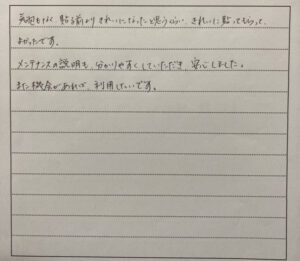 気泡もなく、貼る前よりきれいになったと思うくらい、きれいに貼ってもらって、
よかったです。
メンテナンスの説明も、分かりやすくしていただき、安心しました。
また機会があれば、利用したいです。